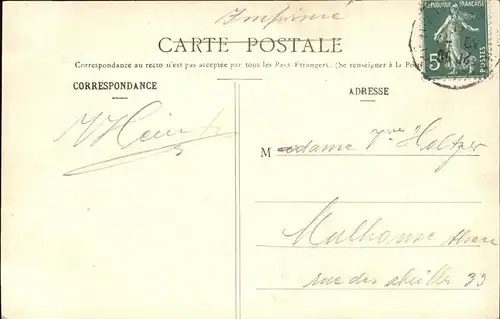 Imprimé
CARTE POSTALE
Correspondance au recto n'est pas acceptée par tous les Pays Etrangers. (Se renseigner à la Pos
CORRESPONDANCE
ADRESSE
REPUBLIQUE FRANÇAISE
5
POSTES
Madame Vve Holtzer
Mulhouse Alsace
rue des abeilles 33